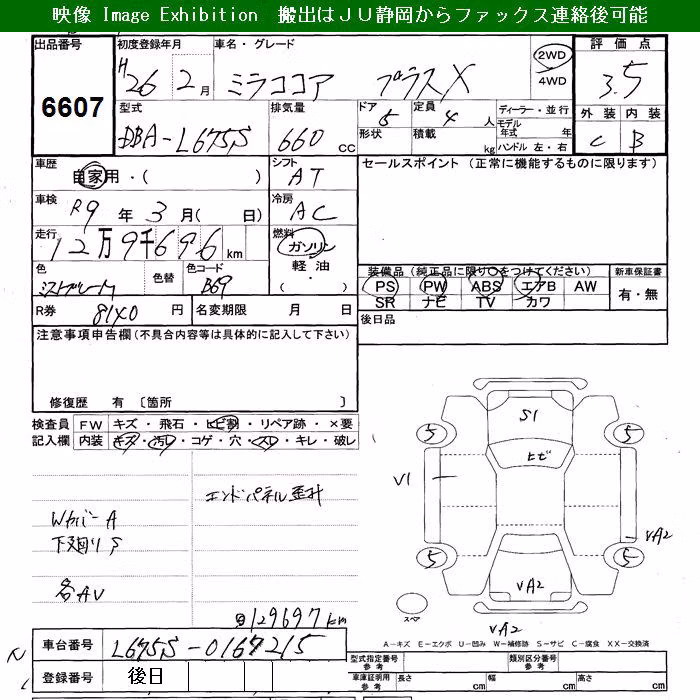 映像 Image Exhibition 搬出はＪＵ静岡からファックス連絡後可能
出品番号 初度登録年月 車名・グレード 評価点
6607 H26年2月 ミラココア プラスX 2WD 4WD 3.5
型式 排気量 ドア 定員 ディーラー・並行 外装 内装
DBA-L675S 660cc 5 4人 モデル年式 年 C B
形状 積載 kg ハンドル 左・右
車歴 シフト セールスポイント (正常に機能するものに限ります)
自家用・( ) AT
車検 冷房
R9年3月( 日) AC
走行 燃料
12万9千696km ガソリン
軽油
・
( )
色 色替 色コード 装備品 (純正品に限り○をつけてください) 新車保証書
B69 PS PW ABS エアB AW 有・無
SR ナビ TV カワ
R券 8140円 名変期限 月 日 後日品
注意事項申告欄(不具合内容等は具体的に記入して下さい)
修復歴 有 〔箇所 〕
検査員 FW キズ・飛石・ヒビ割・リペア跡・×要
記入欄 内装 キズ・汚レ・コゲ・穴・スレ・キレ・破レ
S1
5 5
ヒビ
V1
エンドパネル歪み
Wカバー A
下廻りS
VA2
5 5
各AV
VA2
129697km
スペア
VA2
A－キズ E－エクボ U－凹み W－補修跡 S－サビ C－腐食 XX－交換済
車台番号 L675S-0167215
型式指定番号 参考 類別区分番号 参考
登録番号 後日
車庫証明用 参考 長さ cm 幅 cm 高さ cm